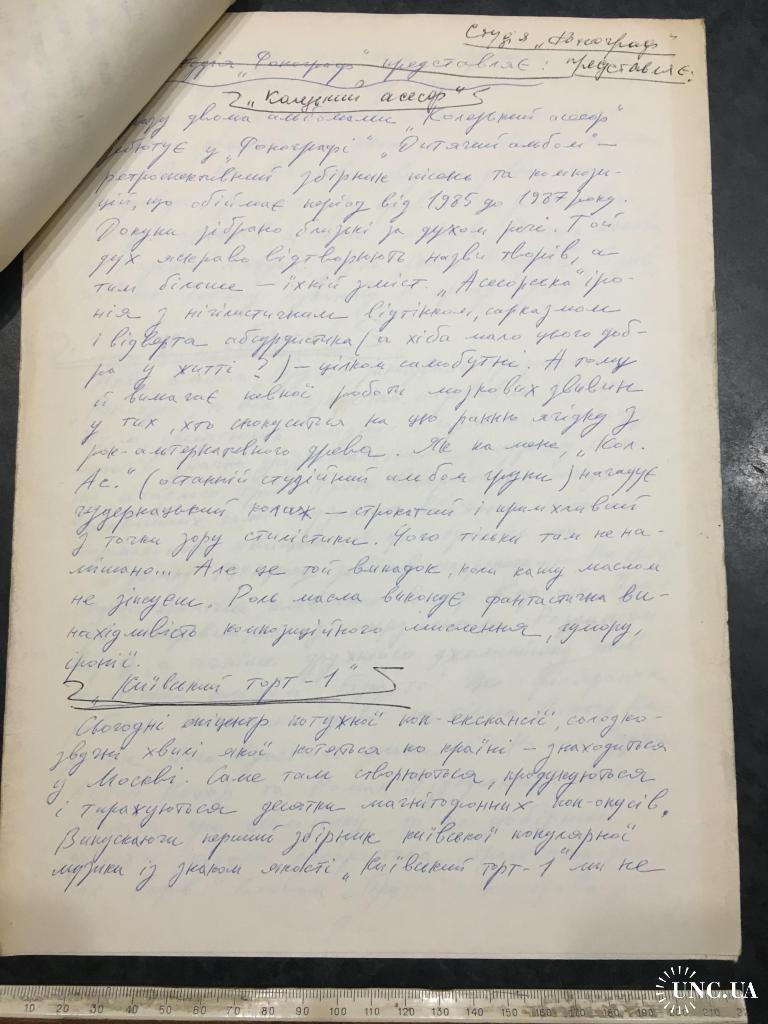 Студія „Фонограф"
представляє:
„Фонограф" представляє:
„Колезький асесор"
двома альбомами „Колезький асесор"
дебютує у „Фонографі" „Дитячий альбом" –
ретроспективний збірник пісень та компози-
цій, що обіймає період від 1985 до 1987 року.
Докупи зібрано близькі за духом речі. Той
дух яскраво відтворюють назви творів, а
тим більше – їхній зміст. „Асесорська" іро-
нія з нігілистичним відтінком, сарказмом
і відверта абсурдистика (а хіба мало цього доб-
ра у житті?) – цілком самобутні. А тому
й вимагає певної роботи мозкових звивин
у тих, хто спокуситься на цю ранню ягідку з
рок-альтернативного древа. Як на мене, „Кол.
Ас." (останній студійний альбом групи) нагадує
чудернацький колаж – строкатий і примхливий
з точки зору стилістики. Чого тільки там не на-
мішано... Але це той випадок, коли кашу маслом
не зіпсуєш. Роль масла виконує фантастична ви-
нахідливість композиційного мислення, гумору,
іронії.
„Київський торт – 1"
Сьогодні епіцентр потужної поп-експансії, солодко-
звучні хвилі якої котяться по країні – знаходиться
у Москві. Саме там створюються, продукуються
і тиражуються десятки магнітофонних поп-опусів.
Випускаючи перший збірник київської популярної
музики із знаком якості „Київський торт-1" ми не
10 20 30 40 50 60 70 80 90 100 110 120 130 140 150 160 170 180 190 200 210
UNC.UA